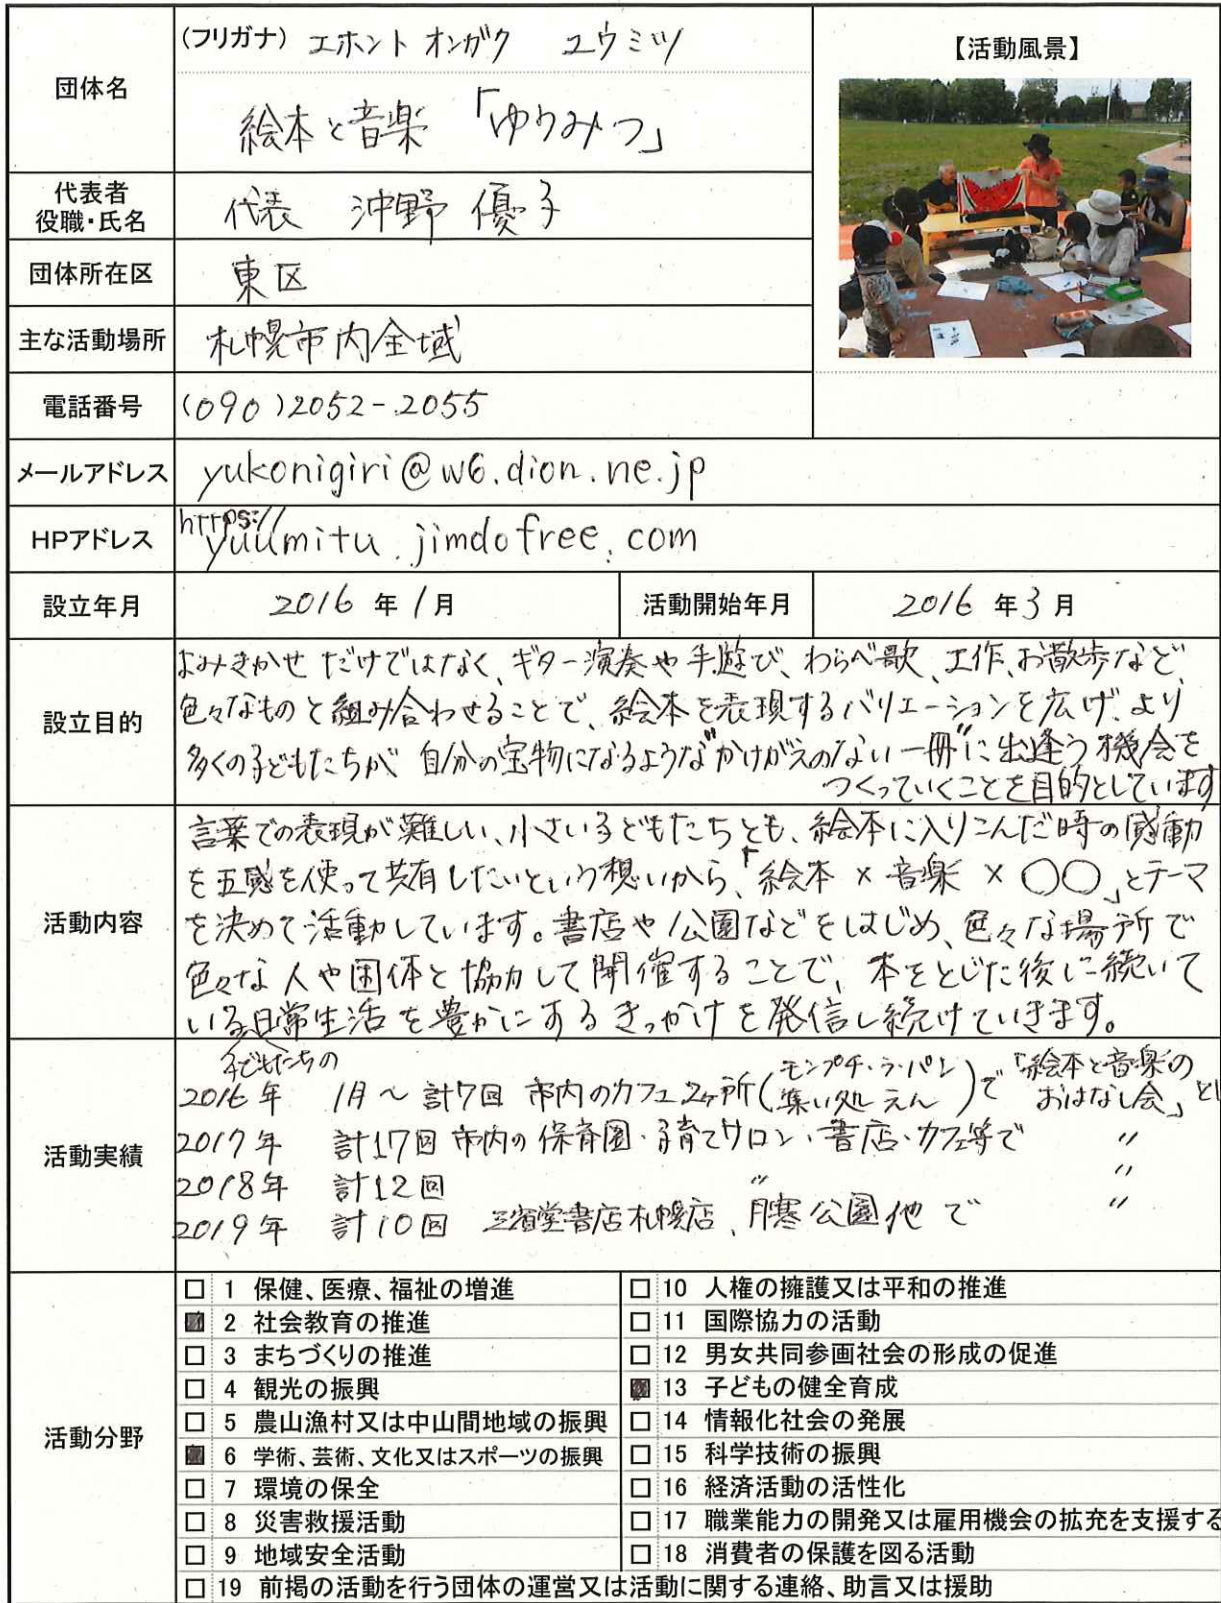 (フリガナ) エホント オンガク ユウミツ
団体名
絵本と音楽 「ゆうみつ」
【活動風景】
代表者
役職・氏名
代表 沖野 優子
団体所在区
東区
主な活動場所
札幌市内全域
電話番号
(090)2052-2055
メールアドレス
yukonigiri@w6.dion.ne.jp
HPアドレス
https://
yuumitu.jimdofree.com
設立年月
2016 年 1 月
活動開始年月
2016 年 3 月
設立目的
よみきかせ だけではなく、ギター演奏や 手遊び、わらべ歌、工作、お散歩など、
色々なものと組み合わせることで、絵本を表現するバリエーションを広げ、より
多くの子どもたちが 自分の宝物になるような"かけがえのない一冊"に出逢う機会を
つくっていくことを目的としています
活動内容
言葉での表現が難しい、小さい子どもたちとも、絵本に入りこんだ時の感動
を五感を使って共有したいという想いから、「絵本 × 音楽 × 〇〇」とテーマ
を決めて活動しています。書店や公園などをはじめ、色々な場所で
色々な人や団体と協力して開催することで、本をとじた後に続いて
いる日常生活を豊かにするきっかけを発信し続けていきます。
子どもたちの
活動実績
2016年 1月〜 計7回 市内のカフェ2ヶ所(モンプチ・ラ・パン 集い処 えん)で「絵本と音楽の おはなし会」とし
2017年 計17回 市内の保育園・子育てサロン・書店・カフェ等で 〃
2018年 計12回 〃 〃
2019年 計10回 三省堂書店札幌店、月寒公園他で 〃
活動分野
□ 1 保健、医療、福祉の増進
■ 2 社会教育の推進
□ 3 まちづくりの推進
□ 4 観光の振興
□ 5 農山漁村又は中山間地域の振興
■ 6 学術、芸術、文化又はスポーツの振興
□ 7 環境の保全
□ 8 災害救援活動
□ 9 地域安全活動
□ 10 人権の擁護又は平和の推進
□ 11 国際協力の活動
□ 12 男女共同参画社会の形成の促進
■ 13 子どもの健全育成
□ 14 情報化社会の発展
□ 15 科学技術の振興
□ 16 経済活動の活性化
□ 17 職業能力の開発又は雇用機会の拡充を支援する
□ 18 消費者の保護を図る活動
□ 19 前掲の活動を行う団体の運営又は活動に関する連絡、助言又は援助